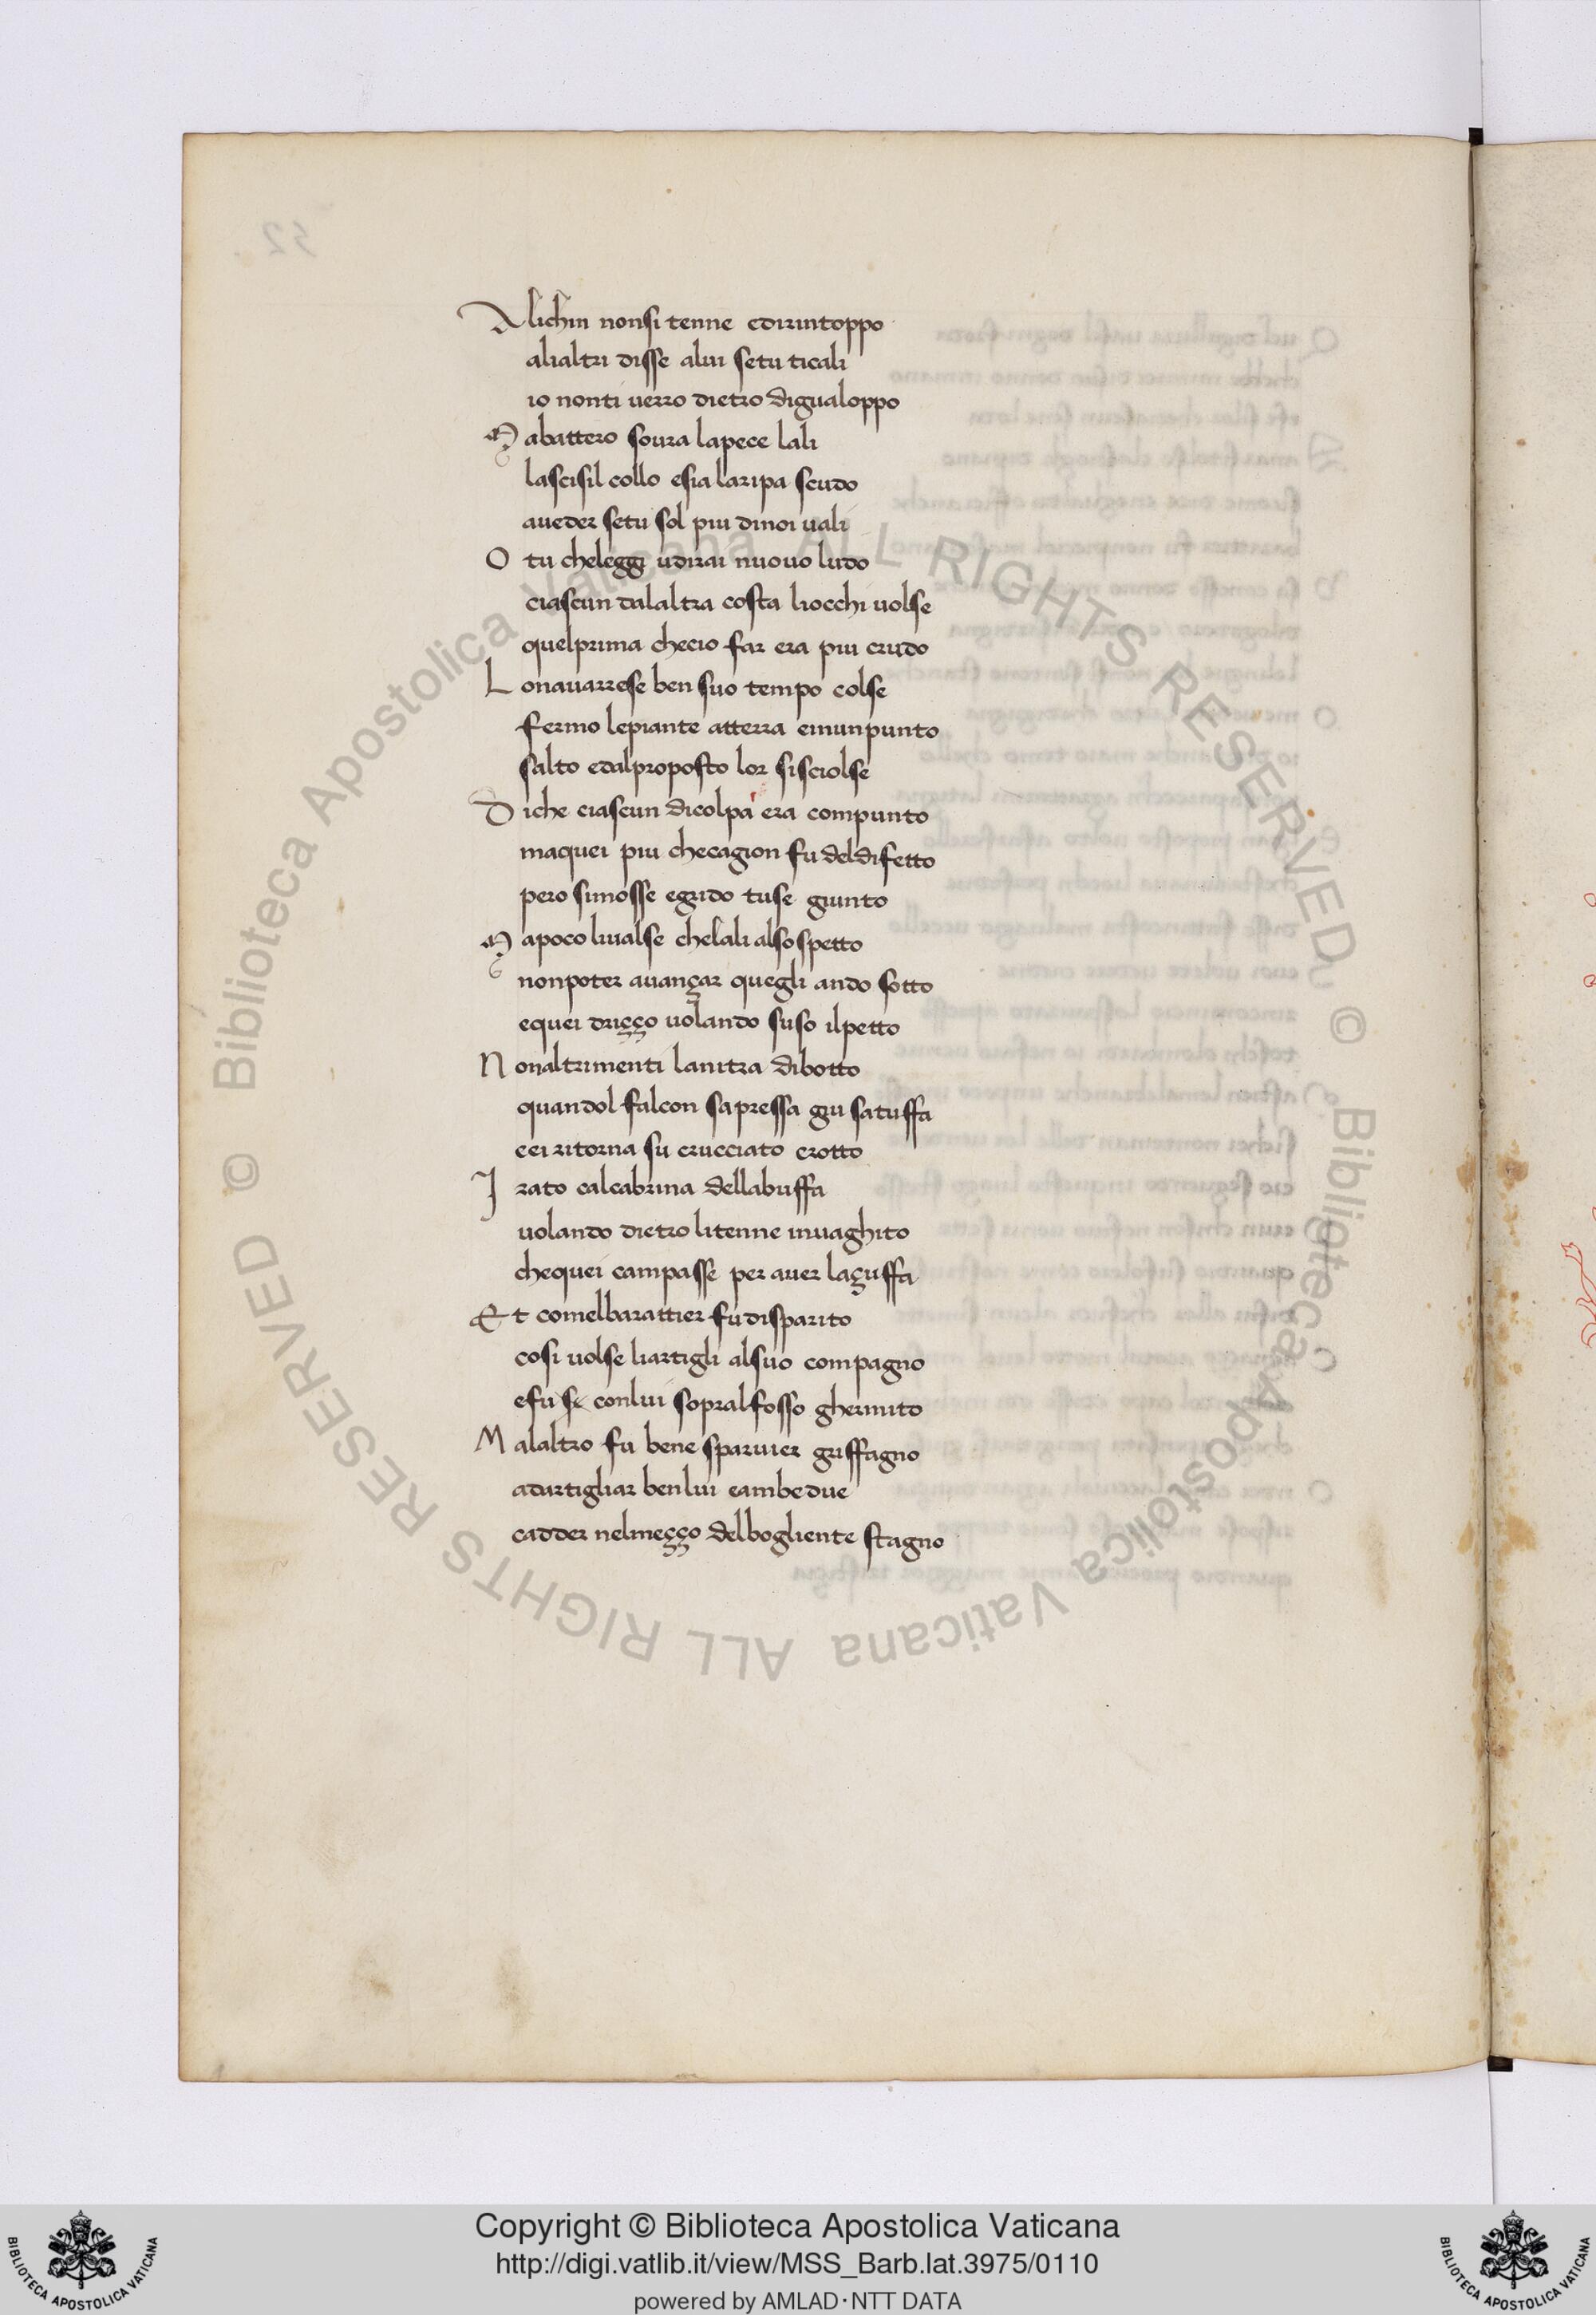 Alichin nonsi tenne edirintoppo
alialtri disse alui setu ticali
io nonti uerro dietro digualoppo
M abattero soura lapece lali
lascisil collo esia laripa scudo
aueder setu sol piu dinoi uali
O tu cheleggi udirai nuouo ludo
ciascun dalaltra costa liocchi uolse
quelprima checio far era piu crudo
L onauarrese ben suo tempo colse
fermo lepiante atterra einunpunto
salto edalproposto lor sisciolse
D iche ciascun dicolpa era compunto
maquei piu checagion fu deldifetto
pero simosse egrido tuse giunto
M apoco liualse chelali alsospetto
nonpoter auançar quegli ando sotto
equei driçço uolando suso ilpetto
N onaltrimenti lanitra dibotto
quandol falcon sapressa giu satuffa
eei ritorna su crucciato erotto
I rato calcabrina dellabuffa
uolando dietro litenne inuaghito
chequei campasse per auer laçuffa
E t comelbarattier fu disparito
cosi uolse liartigli alsuo compagno
efu se conlui sopralfosso ghermito
M alaltro fu bene sparuier griffagno
adartigliar benlui eambedue
cadder nelmeçço delbogliente stagno
Copyright © Biblioteca Apostolica Vaticana
http://digi.vatlib.it/view/MSS_Barb.lat.3975/0110
powered by AMLAD·NTT DATA